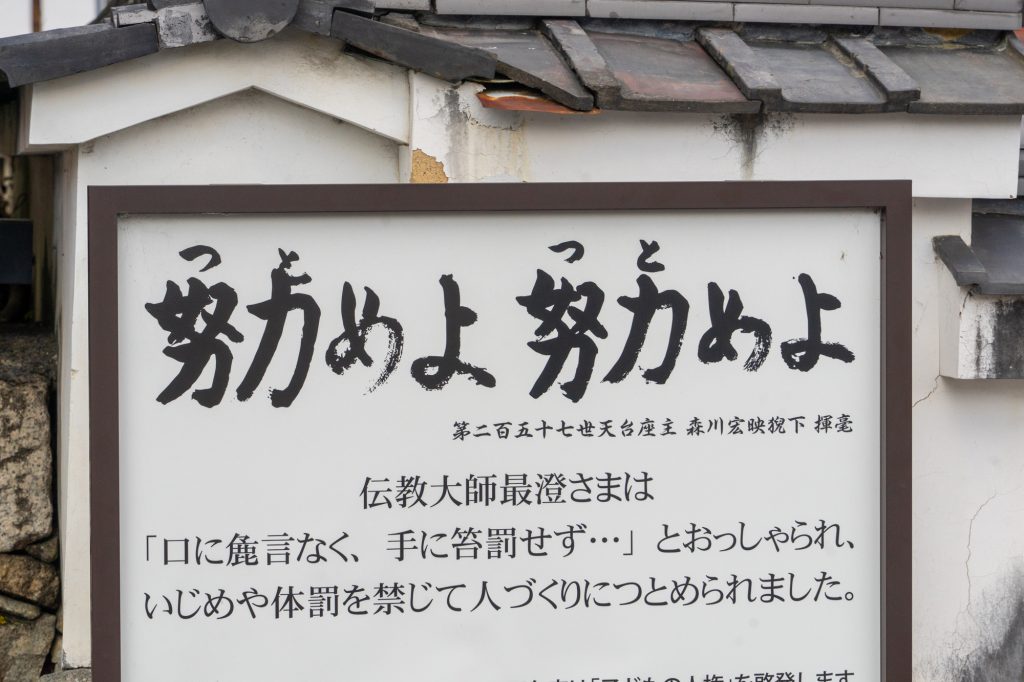 努力めよ 努力めよ
第二百五十七世天台座主 森川宏映猊下 揮毫
伝教大師最澄さまは
「口に麁言なく、手に笞罰せず…」とおっしゃられ、
いじめや体罰を禁じて人づくりにつとめられました。
「子どもの人権」を啓発します